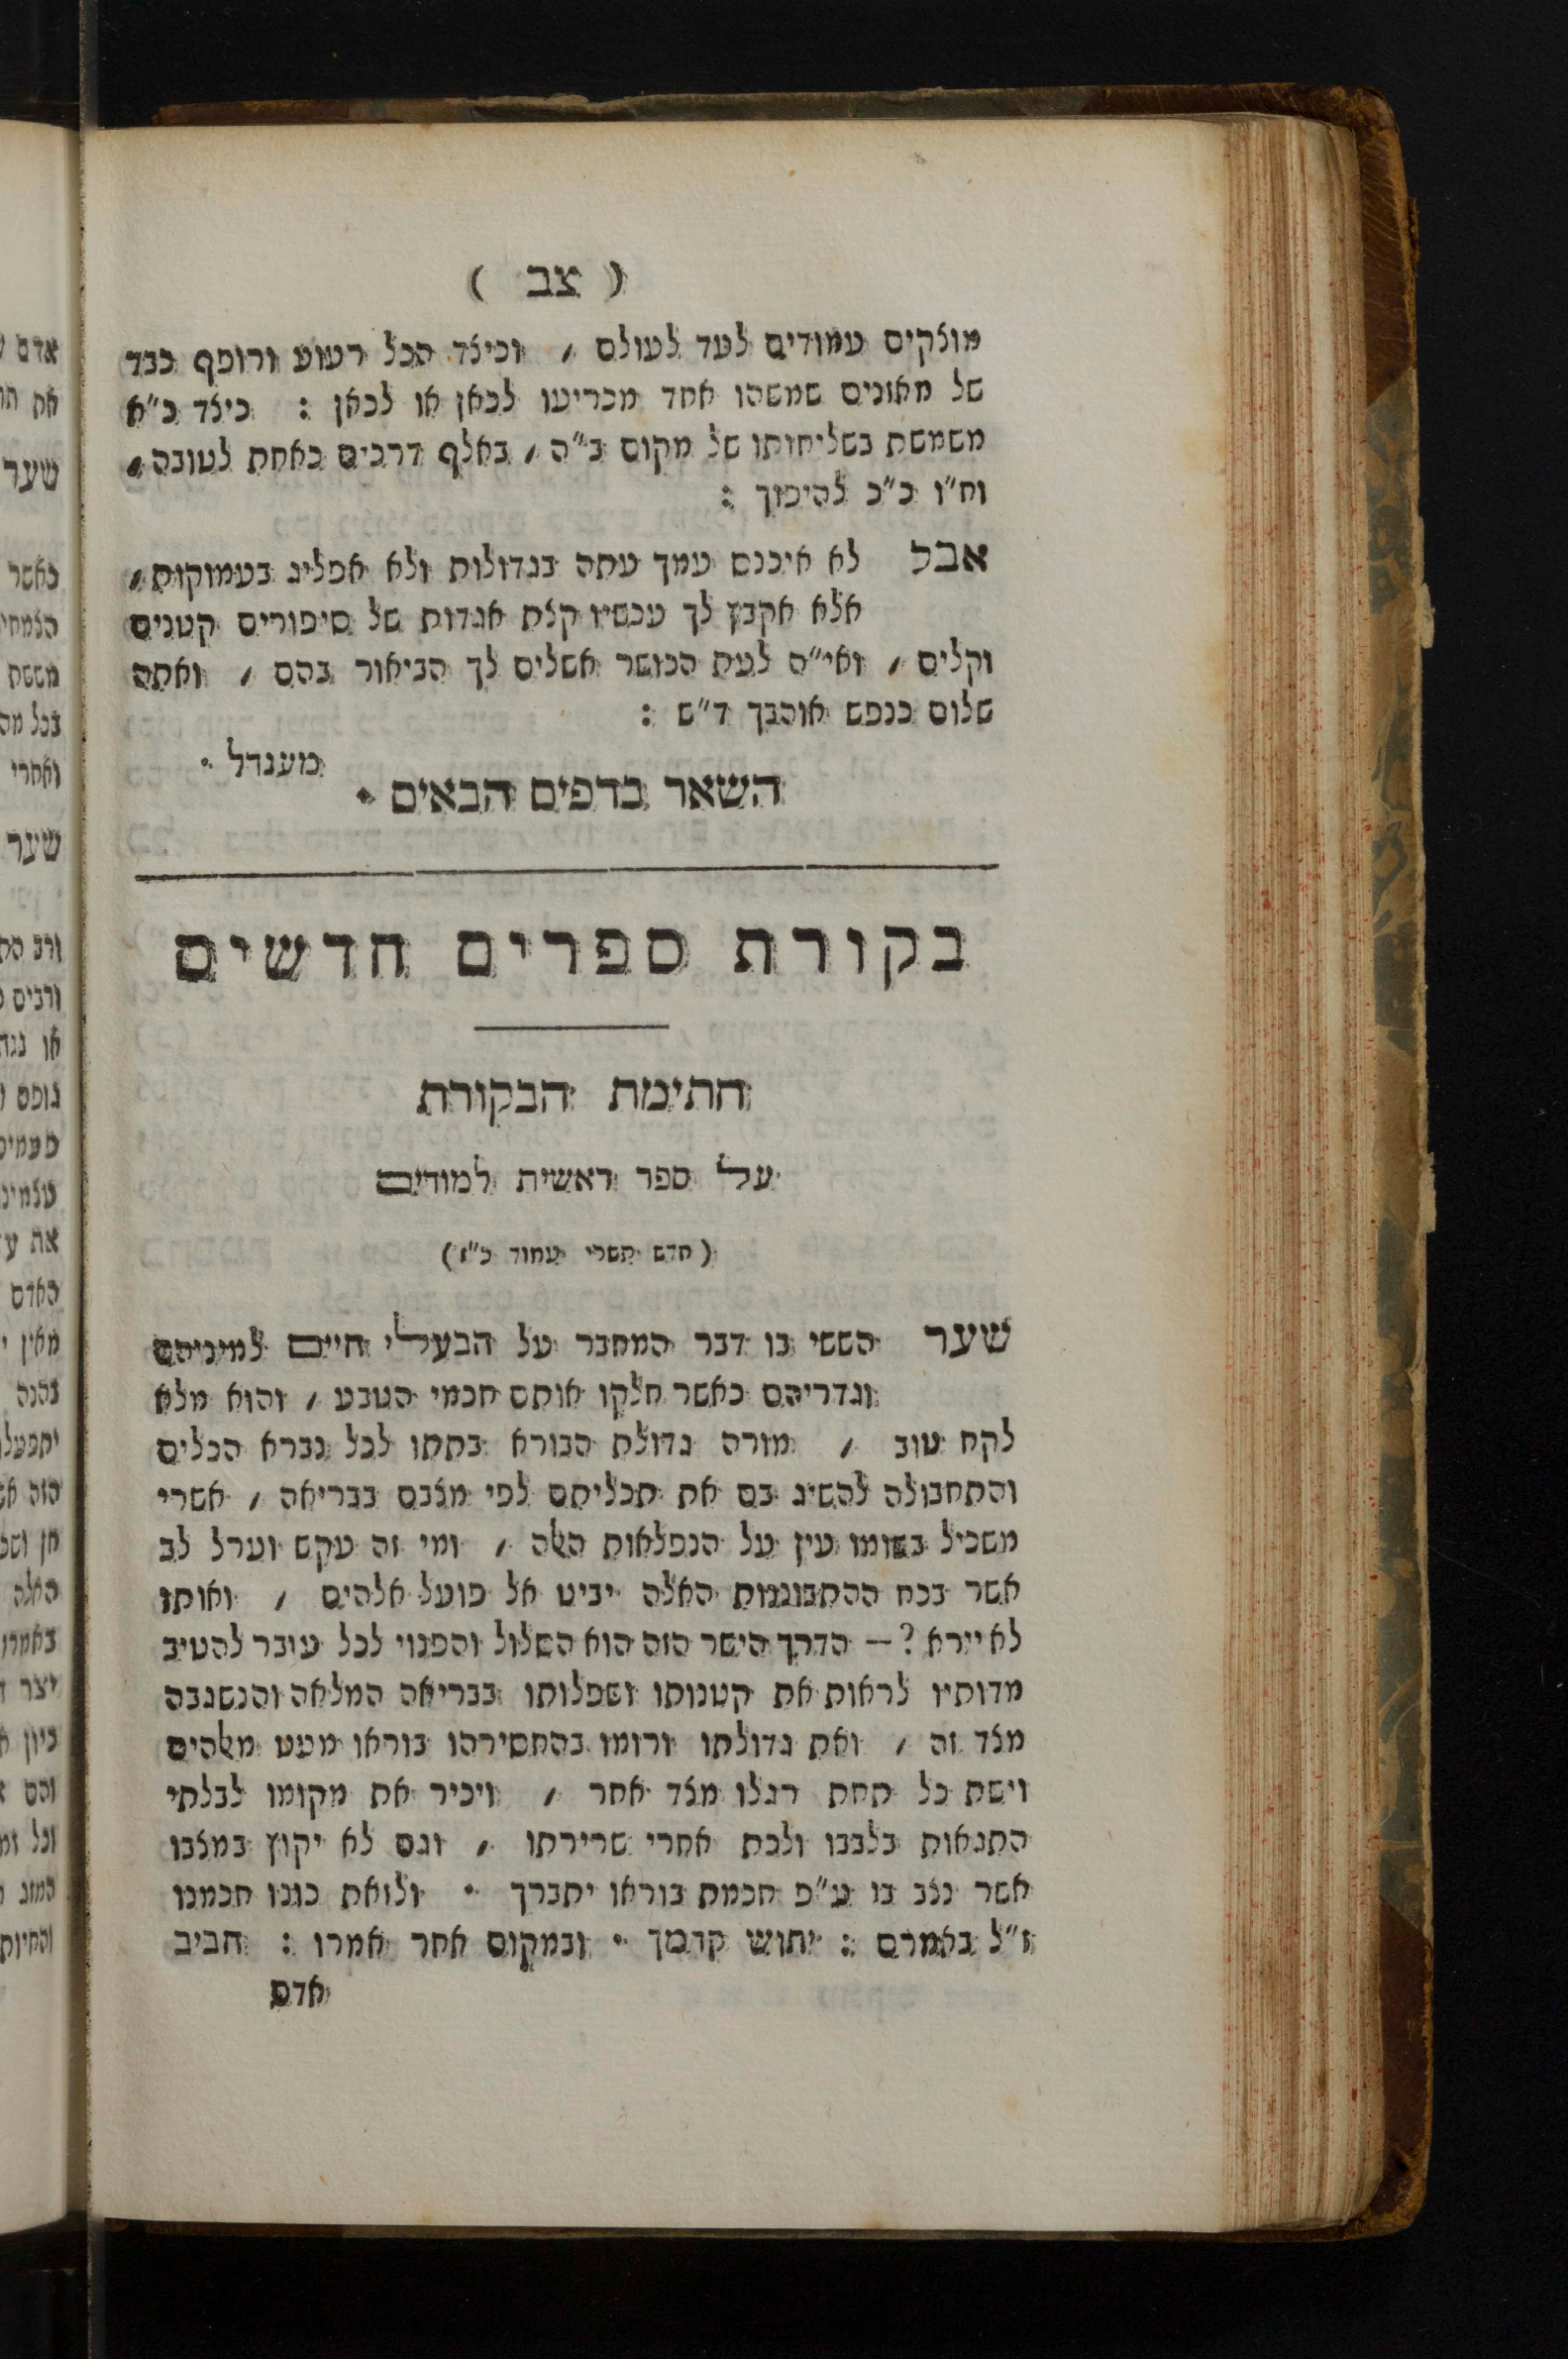 ( צב )
מוצקים עמודים לעד לעולם , וכיצד הכל רעוע ורופף כבד
של מאזנים שמשהו אחד מכריעו לכאן או לכאן : כיצד כ"א
משמשת בשליחותו של מקום ב"ה , באלף דרכים כאחת לטובה ,
וח"ו כ"כ להיפוך :
אבל לא איכנס עמך עתה בגדולות ולא אפליג בעמוקות ,
אלא אקבץ לך עכשיו קצת אגדות של סיפורים קטנים
וקלים , ואי"ה לעת הכושר אשלים לך הביאור בהם , ואתה
שלום כנפש אוהבך ד"ש :
מענדל .
השאר בדפים הבאים .
בקורת ספרים חדשים
חתימת הבקורת
על ספר ראשית למודים
( חדש תשרי עמוד כ"ו )
שער הששי בו דבר המחבר על הבעלי חיים למיניהם
וגדריהם כאשר חלקו אותם חכמי הטבע , והוא מלא
לקח טוב , מורה גדולת הבורא בתתו לכל נברא הכלים
והתחבולה להשיג בם את תכליתם לפי מצבם בבריאה , אשרי
משכיל בשומו עין על הנפלאות האלה , ומי זה עקש וערל לב
אשר בכח ההתבוננות האלה יביט אל פועל אלהים , ואותו
לא יירא ? — הדרך הישר הזה הוא השלול והפנוי לכל עובר להטיב
מדותיו לראות את קטנותו ושפלותו בבריאה המלאה והנשגבה
מצד זה , ואת גדולתו ורומו בהחסירהו בוראו מעט מאלהים
וישת כל תחת רגלו מצד אחר , ויכיר את מקומו לבלתי
התגאות בלבבו ולכת אחרי שרירתו , וגם לא יקוץ במצבו
אשר נצב בו ע"פ חכמת בוראו יתברך . ולזאת כוונו חכמנו
ז"ל באמרם : יתוש קדמך . ובמקום אחר אמרו : חביב
אדם